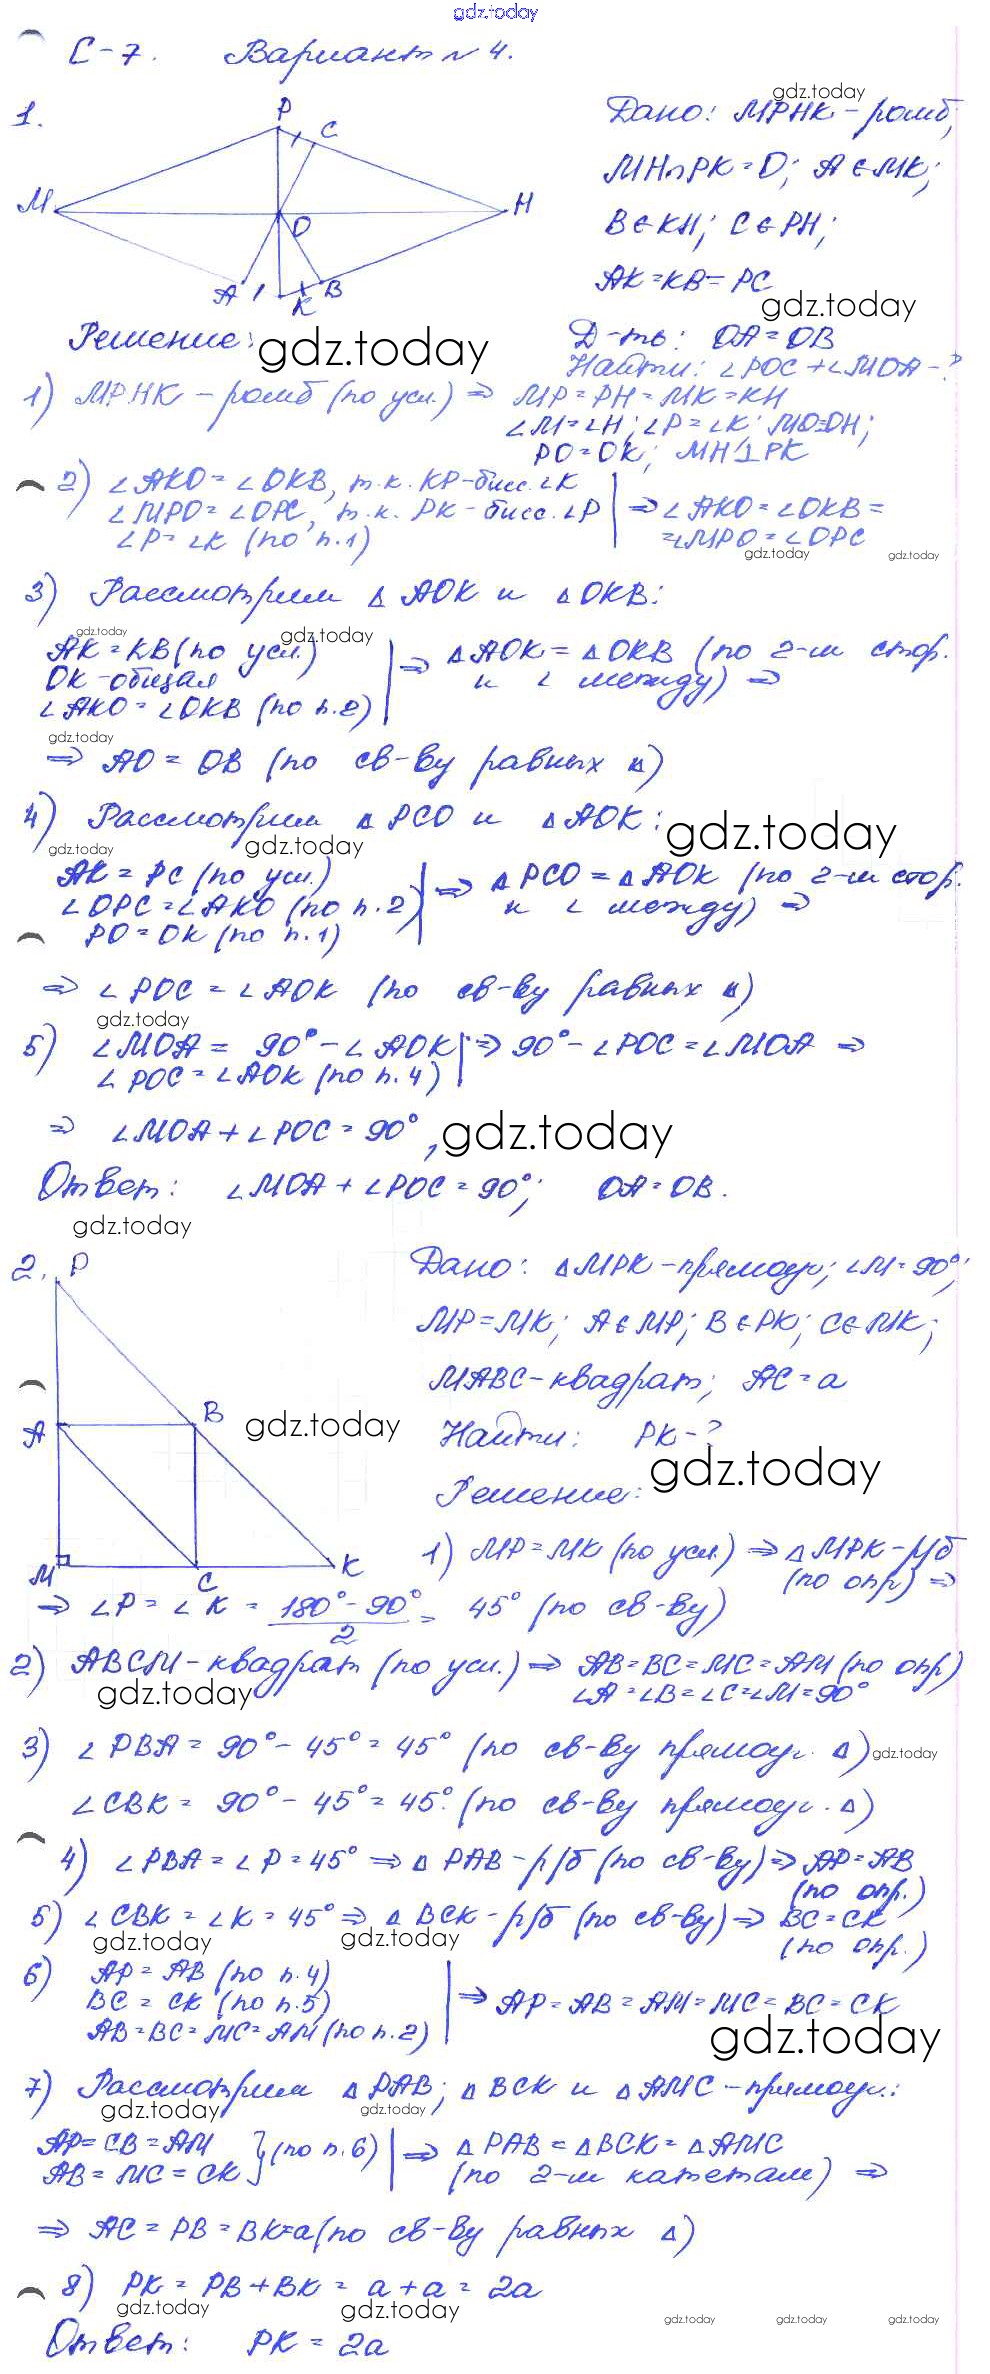 gdz.today
С-7. Вариант № 4.
1.
P
C
M
O
H
A
K
B
gdz.today
Дано: MPHK - ромб,
MH∩PK=O; A∈MK;
B∈KH; C∈PH;
AK=KB=PC
gdz.today
Д-ть: OA=OB
Найти: ∠POC+∠MOA-?
Решение:
gdz.today
1) MPHK - ромб (по усл.) ⇒ MP=PH=MK=KH
∠M=∠H; ∠P=∠K; MO=OH;
PO=OK; MH⊥PK
2) ∠AKO=∠OKB, т.к. KP-бисс.∠K
∠MPO=∠OPC, т.к. PK-бисс.∠P ⇒ ∠AKO=∠OKB=
∠P=∠K (по п.1) =∠MPO=∠OPC
gdz.today gdz.today
3) Рассмотрим △ AOK и △ OKB:
gdz.today gdz.today
AK=KB (по усл.) ⇒ △AOK=△OKB (по 2-м стор.
OK-общая и ∠ между) ⇒
∠AKO=∠OKB (по п.2)
gdz.today
⇒ AO=OB (по св-ву равных △)
4) Рассмотрим △ PCO и △AOK:
gdz.today
gdz.today gdz.today
AK=PC (по усл.) ⇒ △PCO=△AOK (по 2-м стор.
∠OPC=∠AKO (по п.2) и ∠ между) ⇒
PO=OK (по п.1)
⇒ ∠POC=∠AOK (по св-ву равных △)
gdz.today
5) ∠MOA= 90°-∠AOK ⇒ 90°-∠POC=∠MOA ⇒
∠POC=∠AOK (по п.4)
⇒ ∠MOA+∠POC=90°,
gdz.today
Ответ: ∠MOA+∠POC=90°; OA=OB.
gdz.today
2.
P
A
B
M
C
K
Дано: △MPK-прямоуг; ∠M=90°;
MP=MK; A∈MP; B∈PK; C∈MK;
MABC-квадрат; AC=a
gdz.today
Найти: PK-?
gdz.today
Решение:
1) MP=MK (по усл.) ⇒ △MPK-р/б
(по опр) ⇒
⇒ ∠P=∠K = 180°-90°/2 = 45° (по св-ву)
2) ABCM-квадрат (по усл.) ⇒ AB=BC=MC=AM (по опр)
gdz.today
∠A=∠B=∠C=∠M=90°
3) ∠PBA=90°-45°=45° (по св-ву прямоуг. △)
gdz.today
∠CBK= 90°-45°=45°. (по св-ву прямоуг. △)
4) ∠PBA=∠P=45° ⇒ △ PAB-р/б (по св-ву) ⇒ AP=AB
(по опр.)
5) ∠CBK=∠K=45° ⇒ △ BCK-р/б (по св-ву) ⇒ BC=CK
(по опр.)
gdz.today gdz.today
6) AP=AB (по п.4)
BC=CK (по п.5) ⇒ AP=AB=AM=MC=BC=CK
AB=BC=MC=AM (по п.2)
gdz.today
7) Рассмотрим △PAB; △BCK и △AMC-прямоуг.:
gdz.today gdz.today
AP=CB=AM } (по п.6) ⇒ △PAB=△BCK=△AMC
AB=MC=CK (по 2-м катетам) ⇒
⇒ AC=PB=BK=a (по св-ву равных △)
8) PK=PB+BK=a+a=2a
gdz.today gdz.today gdz.today gdz.today gdz.today
Ответ: PK=2a